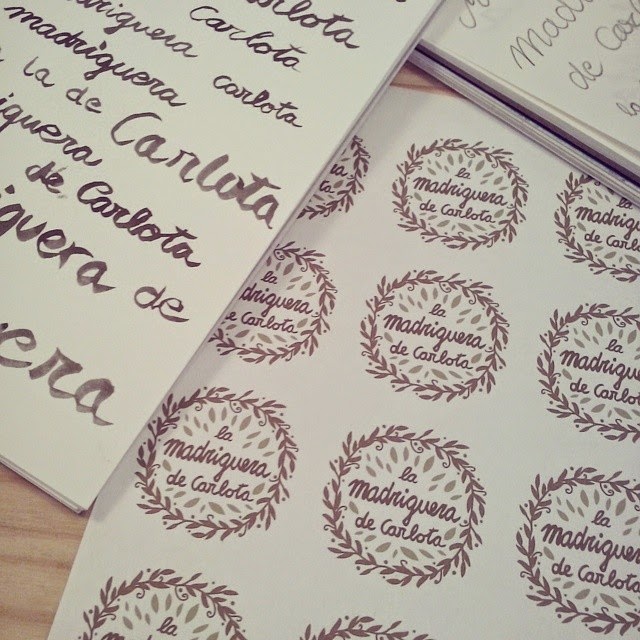 madriguera Carlota
madriguera Carlota
la de Carlota carlota
iguera
de Carlota
iguera de
era
Mad
de Car
la
madriguera
de Carlota
la
madriguera
de Carlota
la
driguera
e Carlota
la
madriguera
de Carlota
la
madriguera
de Carlota
la
madriguera
de Carlota
la
madriguera
de Carlota
la
madriguera
de Carlota
la
madriguera